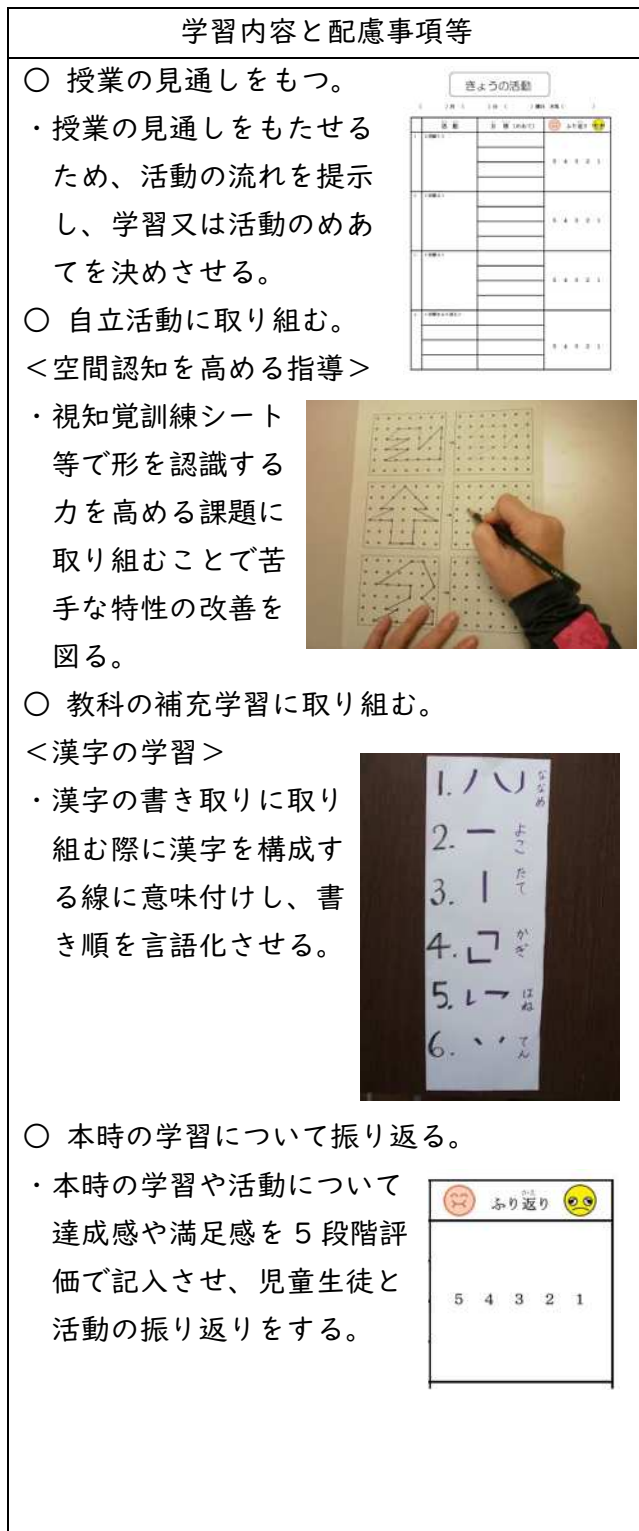 学習内容と配慮事項等
○ 授業の見通しをもつ。
・授業の見通しをもたせる
ため、活動の流れを提示
し、学習又は活動のめあ
てを決めさせる。
きょうの活動
ふり返り
5 4 3 2 1
5 4 3 2 1
5 4 3 2 1
5 4 3 2 1
○ 自立活動に取り組む。
<空間認知を高める指導>
・視知覚訓練シート
等で形を認識する
力を高める課題に
取り組むことで苦
手な特性の改善を
図る。
○ 教科の補充学習に取り組む。
<漢字の学習>
・漢字の書き取りに取り
組む際に漢字を構成す
る線に意味付けし、書
き順を言語化させる。
1. ななめ
2. よこ
3. たて
4. かぎ
5. はね
6. てん
○ 本時の学習について振り返る。
・本時の学習や活動について
達成感や満足感を5段階評
価で記入させ、児童生徒と
活動の振り返りをする。
ふり返り
5 4 3 2 1